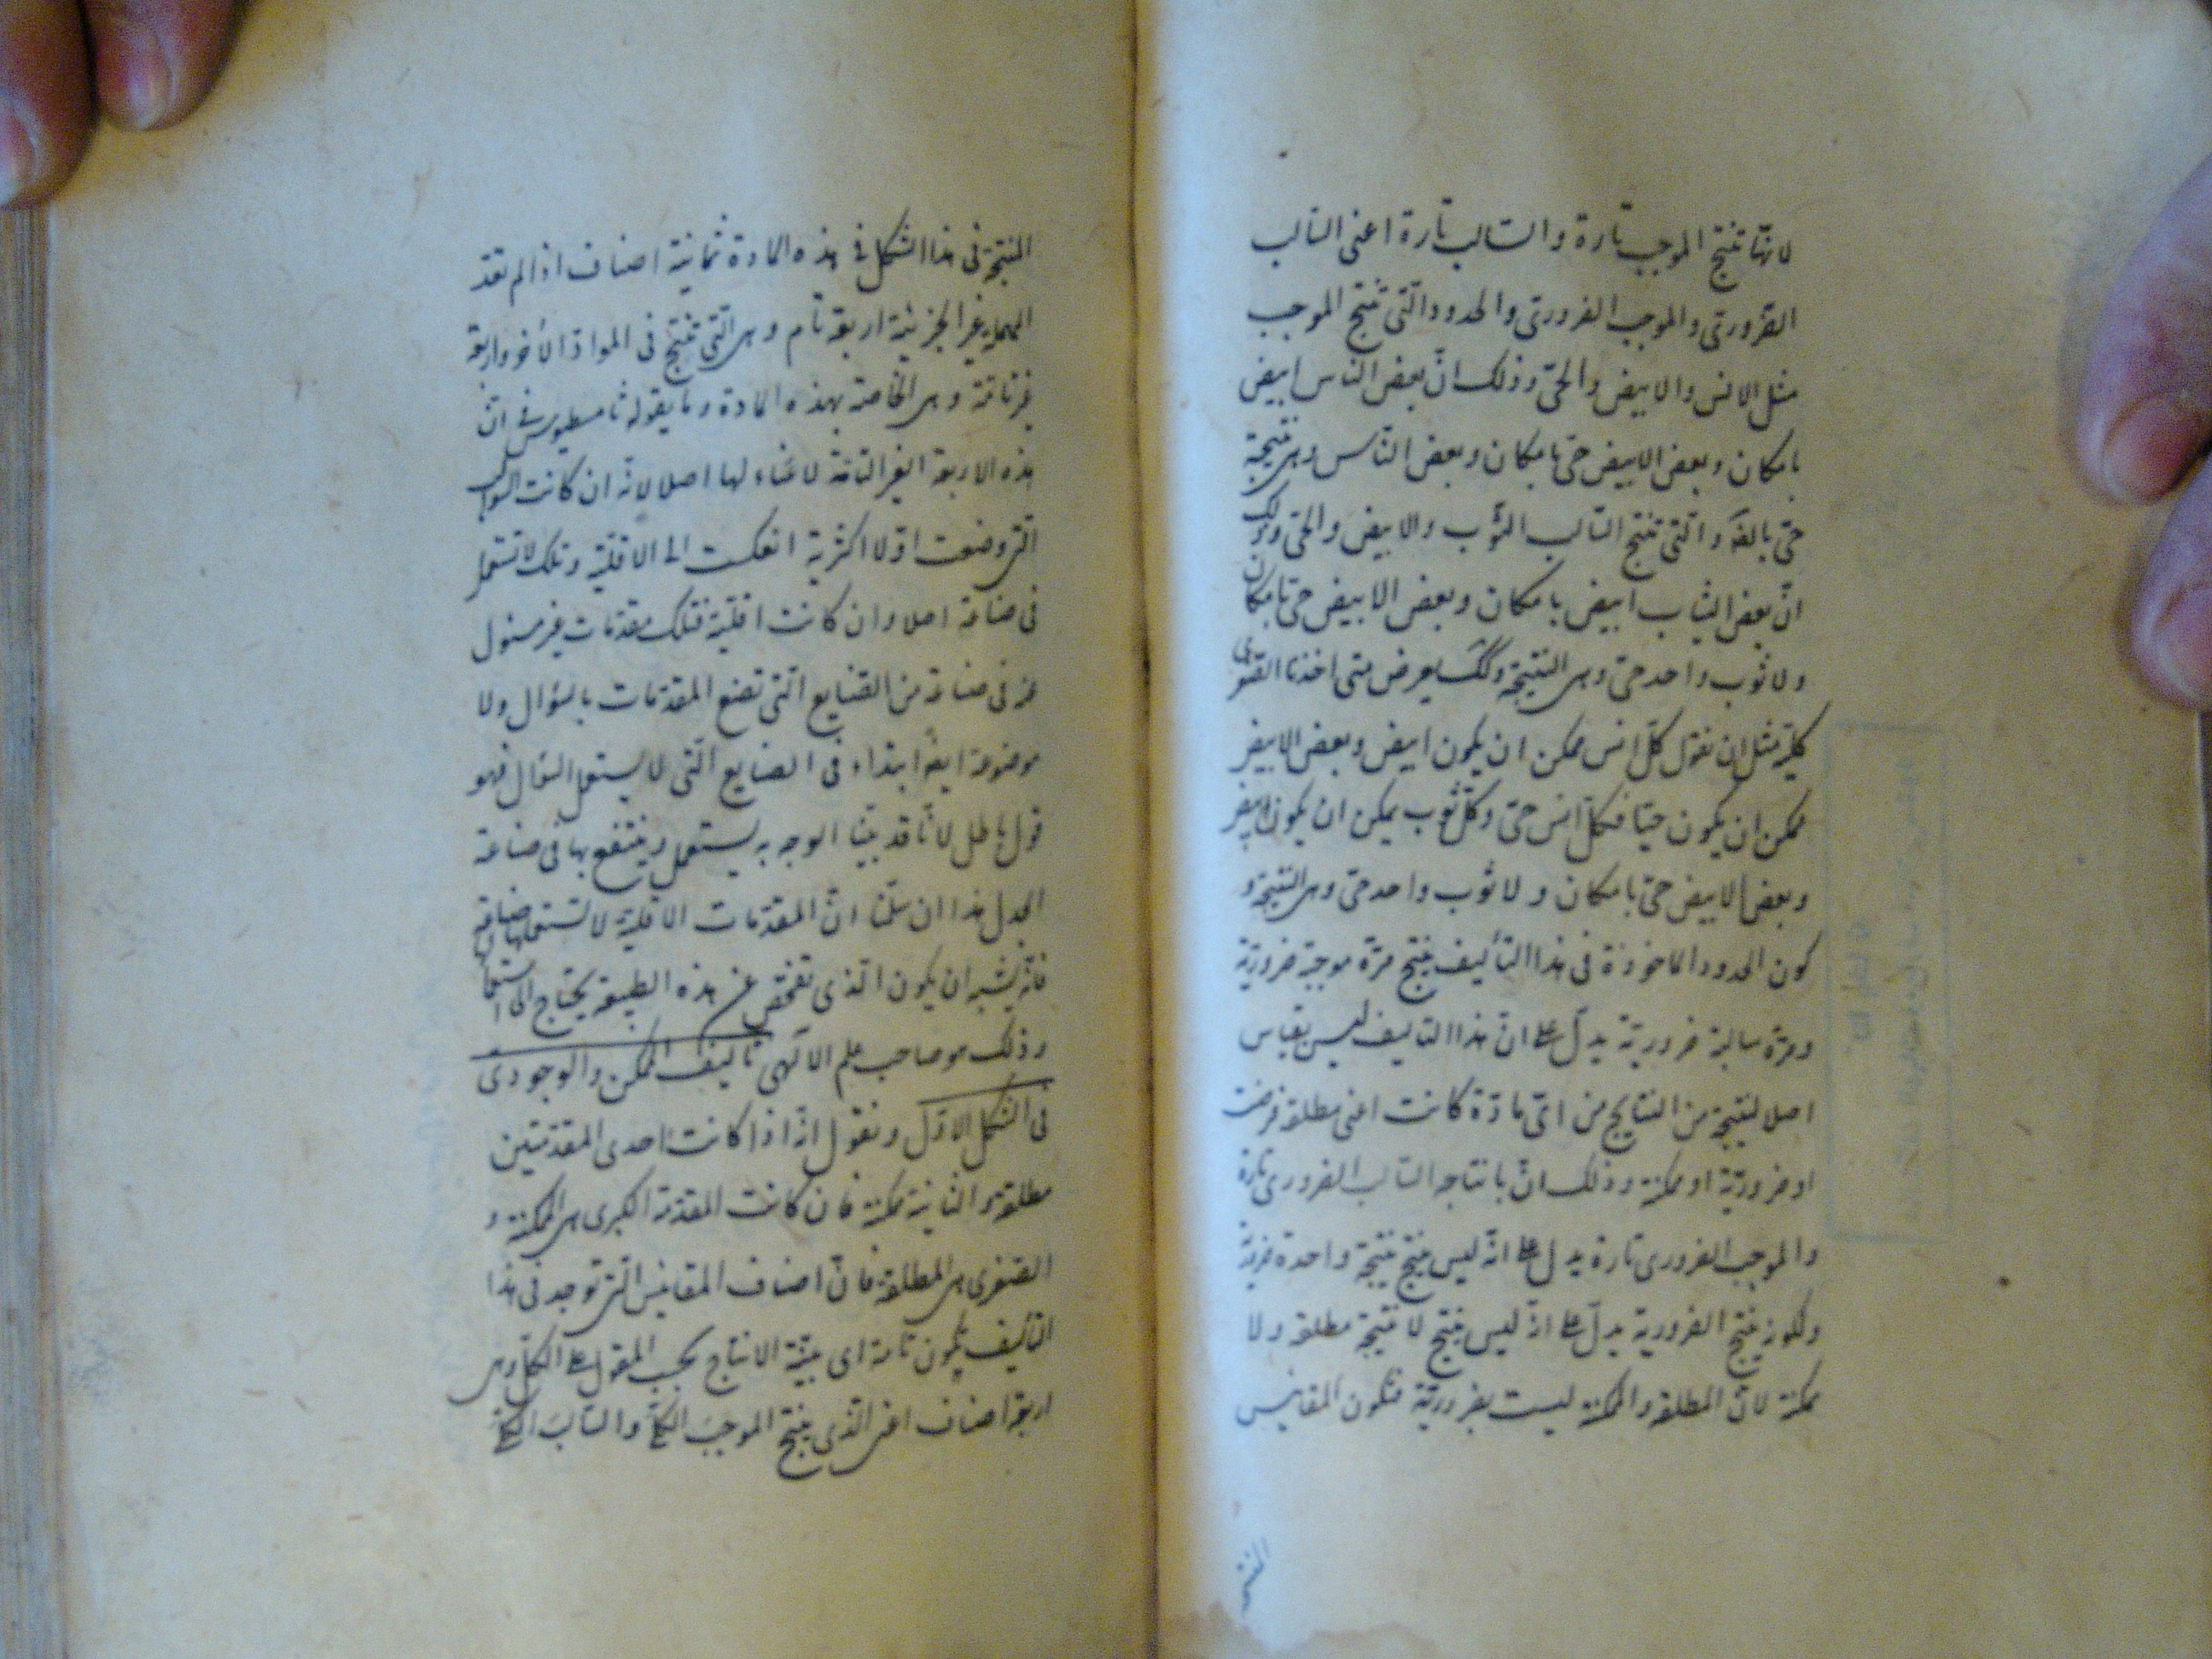 لانها تنتج الموجب تارة والسالب تارة اعنى السالب
الضرورى والموجب الضرورى والحدود الّتى تنتج الموجب
مثل الانس والابيض والحىّ وذلك انّ بعض الناس ابيض
بامكان وبعض الابيض حىّ بامكان وبعض الناس وهى نتيجة
حىّ بالضّه والّتى تنتج السالب الثوب والابيض والحىّ وذلك
انّ بعض الثياب ابيض بامكان وبعض الابيض حىّ بامكان
ولا ثوب واحد حىّ وهى النتيجة وكك يعرض متى اخذنا الصغرى
كلية مثل ان نقول كلّ انس ممكن ان يكون ابيض وبعض الابيض
ممكن ان يكون حيّا فكلّ انس حىّ وكلّ ثوب يمكن ان يكون ابيض
وبعض الابيض حىّ بامكان ولا ثوب واحد حىّ وهى النتيجة و
كون الحدود الماخوذة فى هذا التأليف ينتج مرّة موجبة ضروريّة
ومرّة سالبة ضروريّة يدلّ على انّ هذا التاليف ليس بقياس
اصلا لنتيجة من النتايج من اىّ مادّة كانت اعنى مطلقة فرضت
او ضروريّة او ممكنة وذلك انّ بانتاجه السالب الضرورى تارة
والموجب الضرورى تارة يدل على انّه ليس ينتج نتيجة واحدة ضرورية
ولكونه ينتج الضرورية يدلّ على انّه ليس ينتج لا نتيجة مطلقة ولا
ممكنة لانّ المطلقة والممكنة ليست بضروريّة فتكون المقائيس
المنتجة
المنتجة فى هذا الشكل فى هذه المادة ثمانية اصناف اذا لم تعد
المهملة غير الجزئية اربعة تام وهى الّتى تنتج فى المواد الأخر واربعة
غير تامّة وهى الخاصة بهذه المادة وما يقوله ثامسطيوس فى انّ
هذه الاربعة الغير التامّة لا غناء لها اصلا لانّه ان كانت السوالب
التى وضعت اوّلا اكثرية انعكست الى الاقليّة وتلك لا تستعمل
فى صناعة اصلا وان كانت اقليّة فتلك مقدّمات غير مسئول
عنه فى صناعة من الصّنايع الّتى تصنع المقدّمات بالسؤال ولا
موضوعة ايضا ابتداء فى الصنايع الّتى لا يستعمل السؤال فهو
قول باطل لانّا قد بيّنّا الوجه به يستعمل وينتفع بها فى صناعة
الجدل هذا ان سلّمنا انّ المقدّمات الاقليّة لا تستعملها صناعة
فانّه يشبه ان يكون الّذى تفحّص عن هذه الطبيعة يحتاج الى استعمالها
وذلك هو صاحب علم الالهى تاليف الممكن والوجودى
فى الشكل الاوّل ونقول انّه اذا كانت احدى المقدّمتين
مطلقة والثانية ممكنة فان كانت المقدّمة الكبرى هى الممكنة و
الصّغرى هى المطلقة فانّ اصناف المقائيس الّتى توجد فى هذا
التأليف يكون تامة اى بيّنة الانتاج بحسب المقول على الكلّ وهى
اربعة اصناف اعنى الّذى ينتج الموجب الكلّى والسالب الكلّى